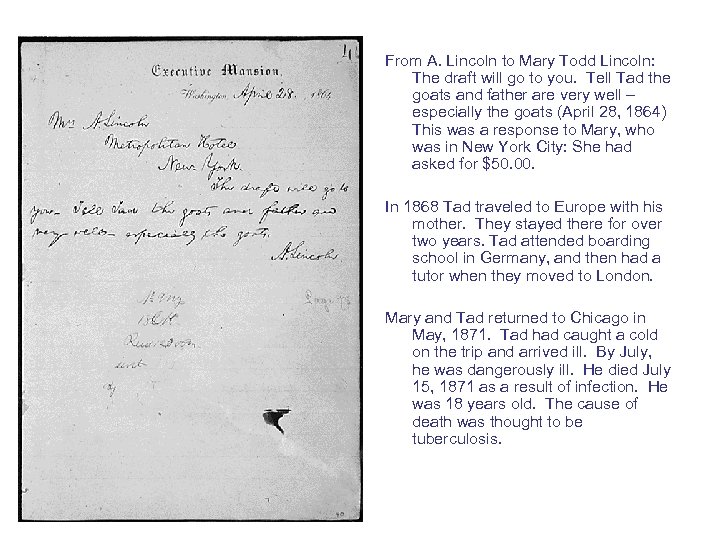 Executive Mansion,
Washington, April 28, 1864
Mrs A. Lincoln
Metropolitan Hotel
New York.
The draft will go to
you. Tell Tad the goats and father are
very well— especially the goats.
A. Lincoln
From A. Lincoln to Mary Todd Lincoln:
The draft will go to you. Tell Tad the
goats and father are very well –
especially the goats (April 28, 1864)
This was a response to Mary, who
was in New York City: She had
asked for $50. 00.
In 1868 Tad traveled to Europe with his
mother. They stayed there for over
two years. Tad attended boarding
school in Germany, and then had a
tutor when they moved to London.
Mary and Tad returned to Chicago in
May, 1871. Tad had caught a cold
on the trip and arrived ill. By July,
he was dangerously ill. He died July
15, 1871 as a result of infection. He
was 18 years old. The cause of
death was thought to be
tuberculosis.